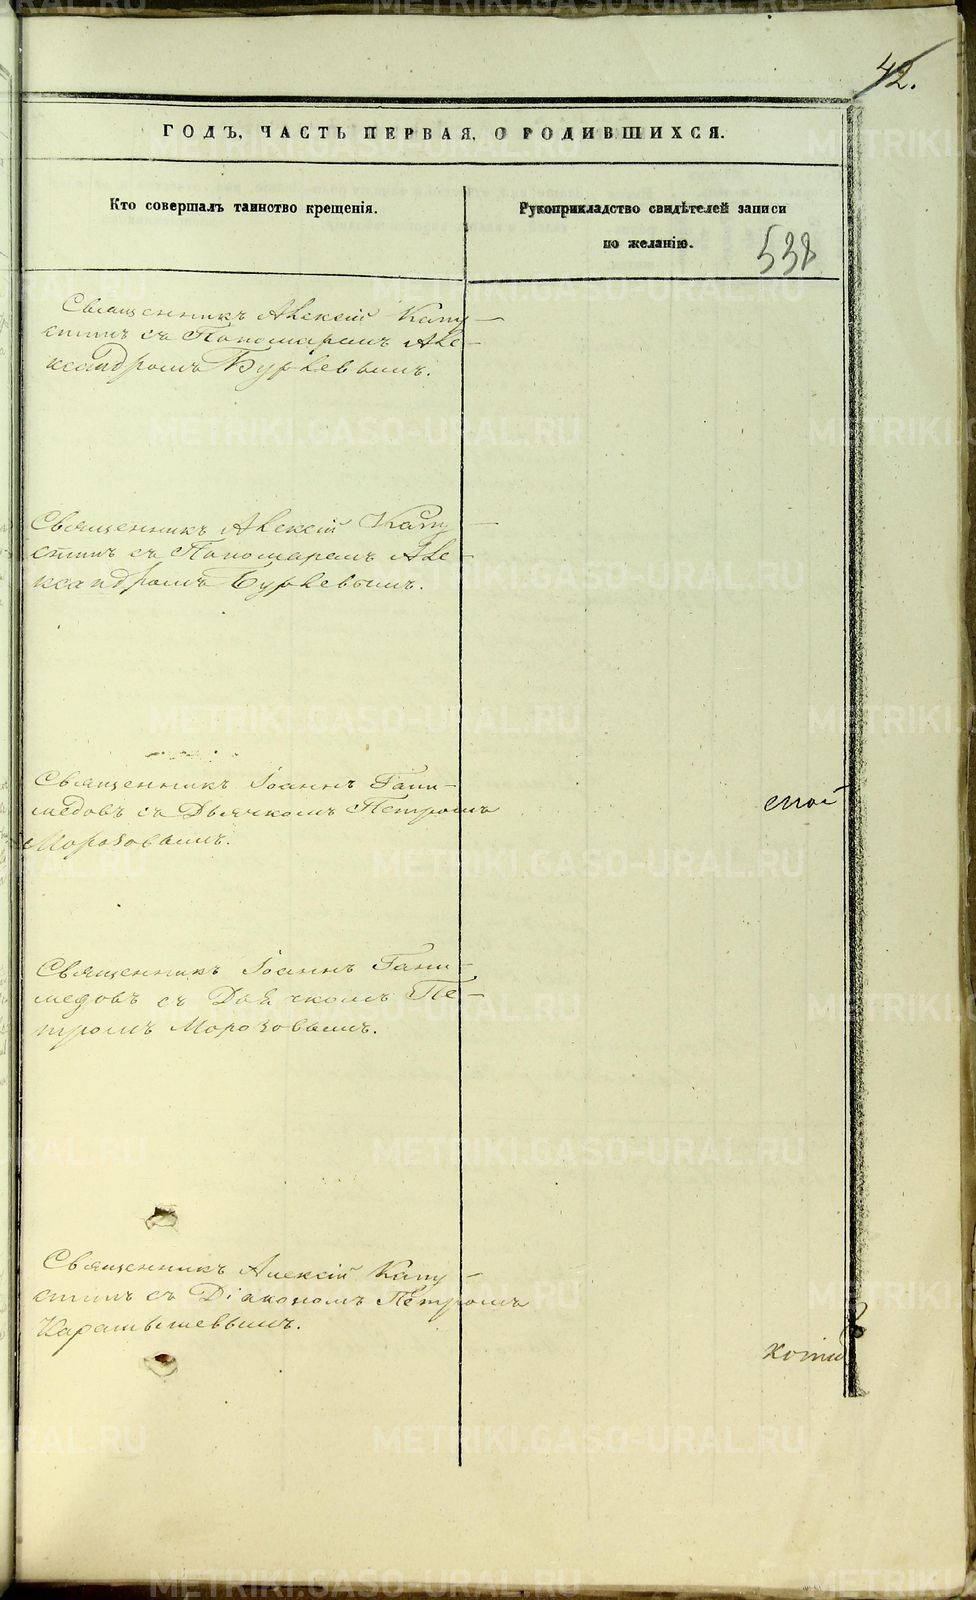 42.
ГОДЪ, ЧАСТЬ ПЕРВАЯ, О РОДИВШИХСЯ.
Кто совершалъ таинство крещенія.
Рукоприкладство свидѣтелей записи
по желанію.
538
Священникъ Алексій Капу-
стинъ съ Пономаремъ Але-
ксандромъ Бурлевымъ.
Священникъ Алексій Капу-
стинъ съ Пономаремъ Але-
ксандромъ Бурлевымъ.
Священникъ Іоаннъ Гани-
медовъ съ Дьячкомъ Петромъ
Морозовымъ.
Священникъ Іоаннъ Гани-
медовъ съ Дьячкомъ Пе-
тромъ Морозовымъ.
Священникъ Алексій Капу-
стинъ съ Діакономъ Петромъ
Карамышевымъ.
METRIKI.GASO-URAL.RU